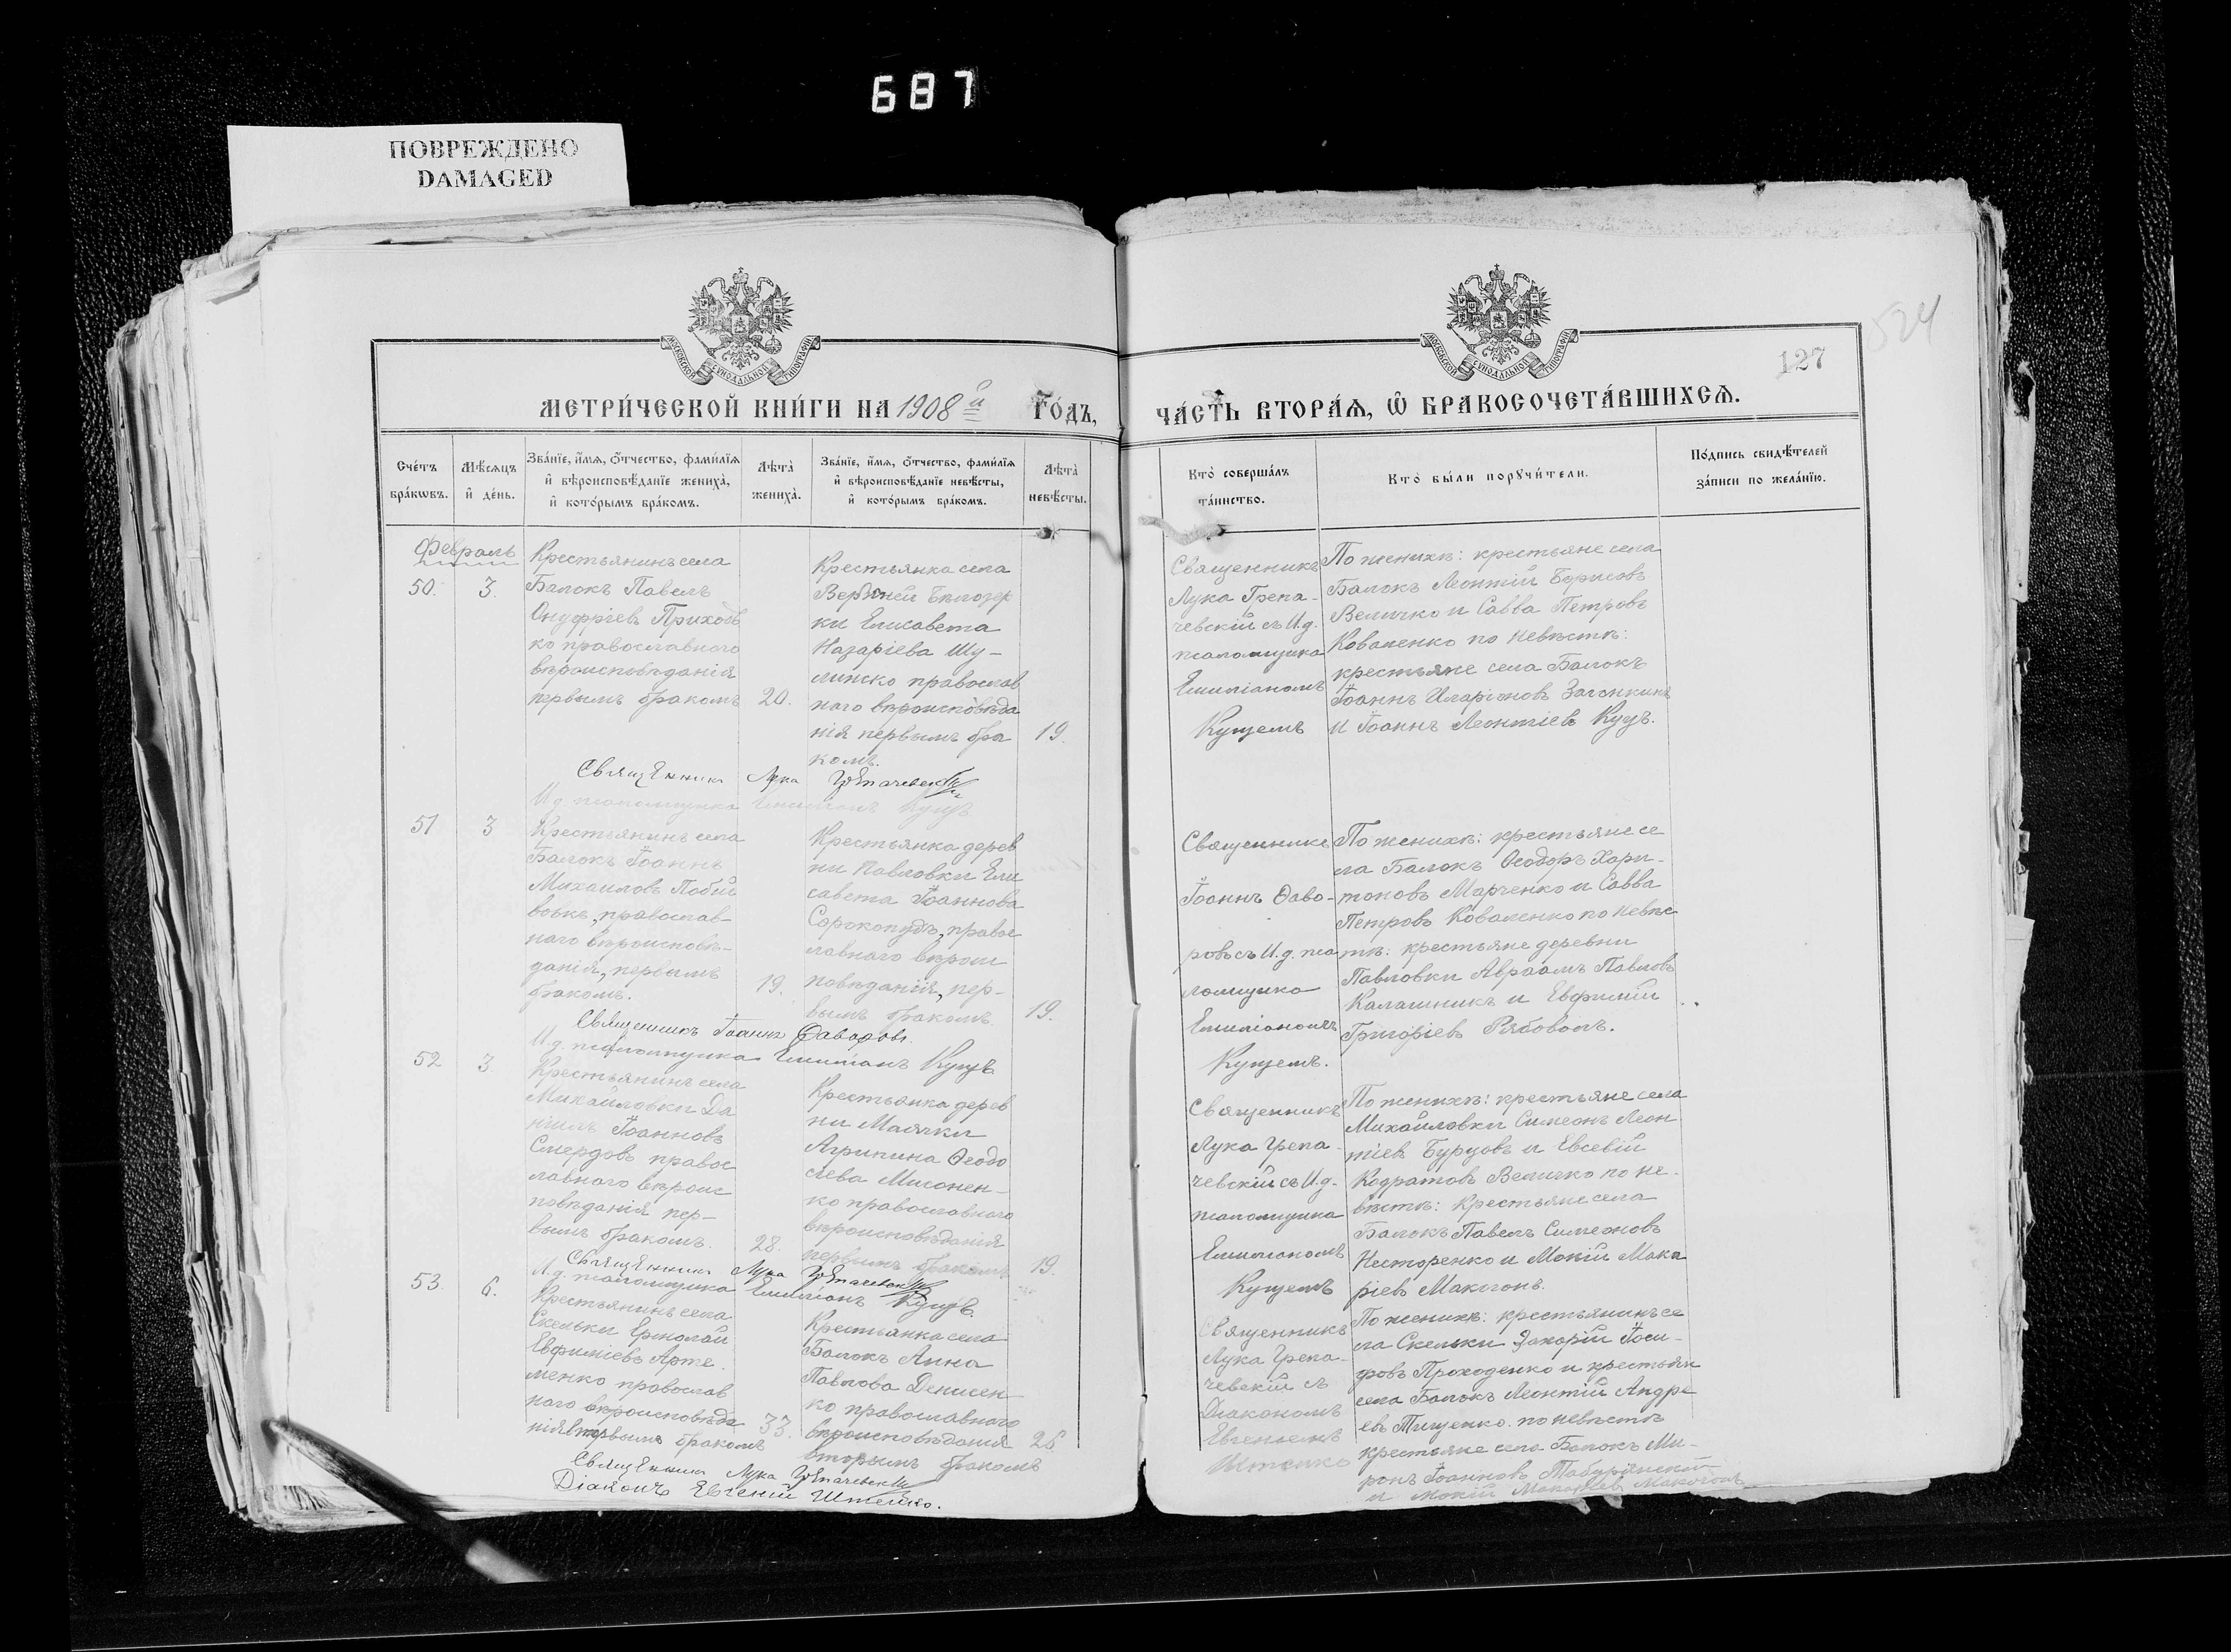 687
ПОВРЕЖДЕНО
DAMAGED
127
МЕТРИ́ЧЕСКОЙ КНИ́ГИ НА 1908й ГО́ДЪ,
ЧА́СТЬ ВТОРА́Ѧ, Ѿ БРАКОСОЧЕТА́ВШИХСѦ.
Сче́тъ бра́кѡвъ.
Мѣ́сяцъ и҆ де́нь.
Зва́нїе, и҆́мѧ, ѻ҆́тчество, фами́лїѧ
и҆ вѣроисповѣ́данїе жениха̀,
и҆ кото́рымъ бра́комъ.
Лѣта̀ жениха̀.
Зва́нїе, и҆́мѧ, ѻ҆́тчество, фами́лїѧ
и҆ вѣроисповѣ́данїе невѣ́сты,
и҆ кото́рымъ бра́комъ.
Лѣта̀ невѣ́сты.
Кто̀ соверша́лъ
та́инство.
Кто̀ бы́ли порꙋчи́тели.
По́дпись свидѣ́телей
за́писи по жела́нїю.
Февраль
50.
3.
Крестьянинъ села
Балокъ Павелъ
Онуфріевъ Приходь
ко православнаго
вѣроисповѣданія
первымъ бракомъ
20.
Крестьянка села
Верхней Бѣлозер
ки Елисавета
Назаріева Шу-
липко православ
наго вѣроисповѣда
нія первымъ бра
комъ.
19.
Священникъ
Лука Грепа-
чевскій съ И.д.
псаломщика
Емиліаномъ
Кущемъ
По женихѣ: крестьяне села
Балокъ Леонтій Борисовъ
Величко и Савва Петровъ
Коваленко по невѣстѣ:
крестьяне села Балокъ
Іоаннъ Иларіоновъ
и Іоаннъ Леонтіевъ Куцъ.
Священникъ Лука Грепачевскій
И.д. псаломщика Емиліанъ Кущъ
51
3
Крестьянинъ села
Балокъ Іоаннъ
Михаиловъ Побий
вовкъ, православ-
наго вѣроисповѣ-
данія, первымъ
бракомъ.
19.
Крестьянка дерев
ни Павловки Ели
савета Іоаннова
Сорокопудъ, правос
лавнаго вѣроис
повѣданія, пер-
вымъ бракомъ.
19.
Священникъ
Іоаннъ Ѳаво-
ровъ съ И.д. пса
ломщика
Емиліаномъ
Кущемъ.
По женихѣ: крестьяне се
ла Балокъ Ѳеодоръ Хари-
тоновъ Марченко и Савва
Петровъ Коваленко по невѣс
тѣ: крестьяне деревни
Павловки Авраамъ Павловъ
Калашникъ и Евфимій
Григоріевъ Рябоволъ.
Священникъ Іоаннъ Ѳаворовъ.
И.д. псаломщика Емиліанъ Кущъ
52
3.
Крестьянинъ села
Михайловки Да
ніилъ Іоанновъ
Смердовъ правос
лавнаго вѣроис
повѣданія пер-
вымъ бракомъ.
28.
Крестьянка дерев
ни Маячки
Агрипина Ѳеодо
сіева Мисонен-
ко православнаго
вѣроисповѣданія
первымъ бракомъ
19.
Священникъ
Лука Грепа-
чевскій съ И.д.
псаломщика
Емиліаномъ
Кущемъ
По женихѣ: крестьяне села
Михайловки Симеонъ Леон
тіевъ Бурцовъ и Евсевій
Кодратовъ Величко по не-
вѣстѣ: крестьяне села
Балокъ Павелъ Симеоновъ
Несторенко и Мокій Мака
ріевъ Макогонъ.
Священникъ Лука Грепачевскій
И.д. псаломщика Емиліанъ Кущъ.
53.
6.
Крестьянинъ села
Скельки Ермолай
Евфиміевъ Арте-
менко православ
наго вѣроисповѣда
нія первымъ бракомъ
33.
Крестьянка села
Балокъ Анна
Павлова Денисен-
ко православнаго
вѣроисповѣданія
вторымъ бракомъ
26.
Священникъ
Лука Грепа-
чевскій съ
Діакономъ
Евгеніемъ
По женихѣ: крестьянинъ се
ла Скельки Захарій Іоси-
фовъ Проходенко и крестьян
села Балокъ Леонтій Андре
евъ Тищенко. по невѣстѣ
крестьяне села Балокъ Ми-
ронъ Іоанновъ
и Мокій Макаріевъ Макогонъ
Священникъ Лука Грепачевскій
Діаконъ Евгеній Штейко.